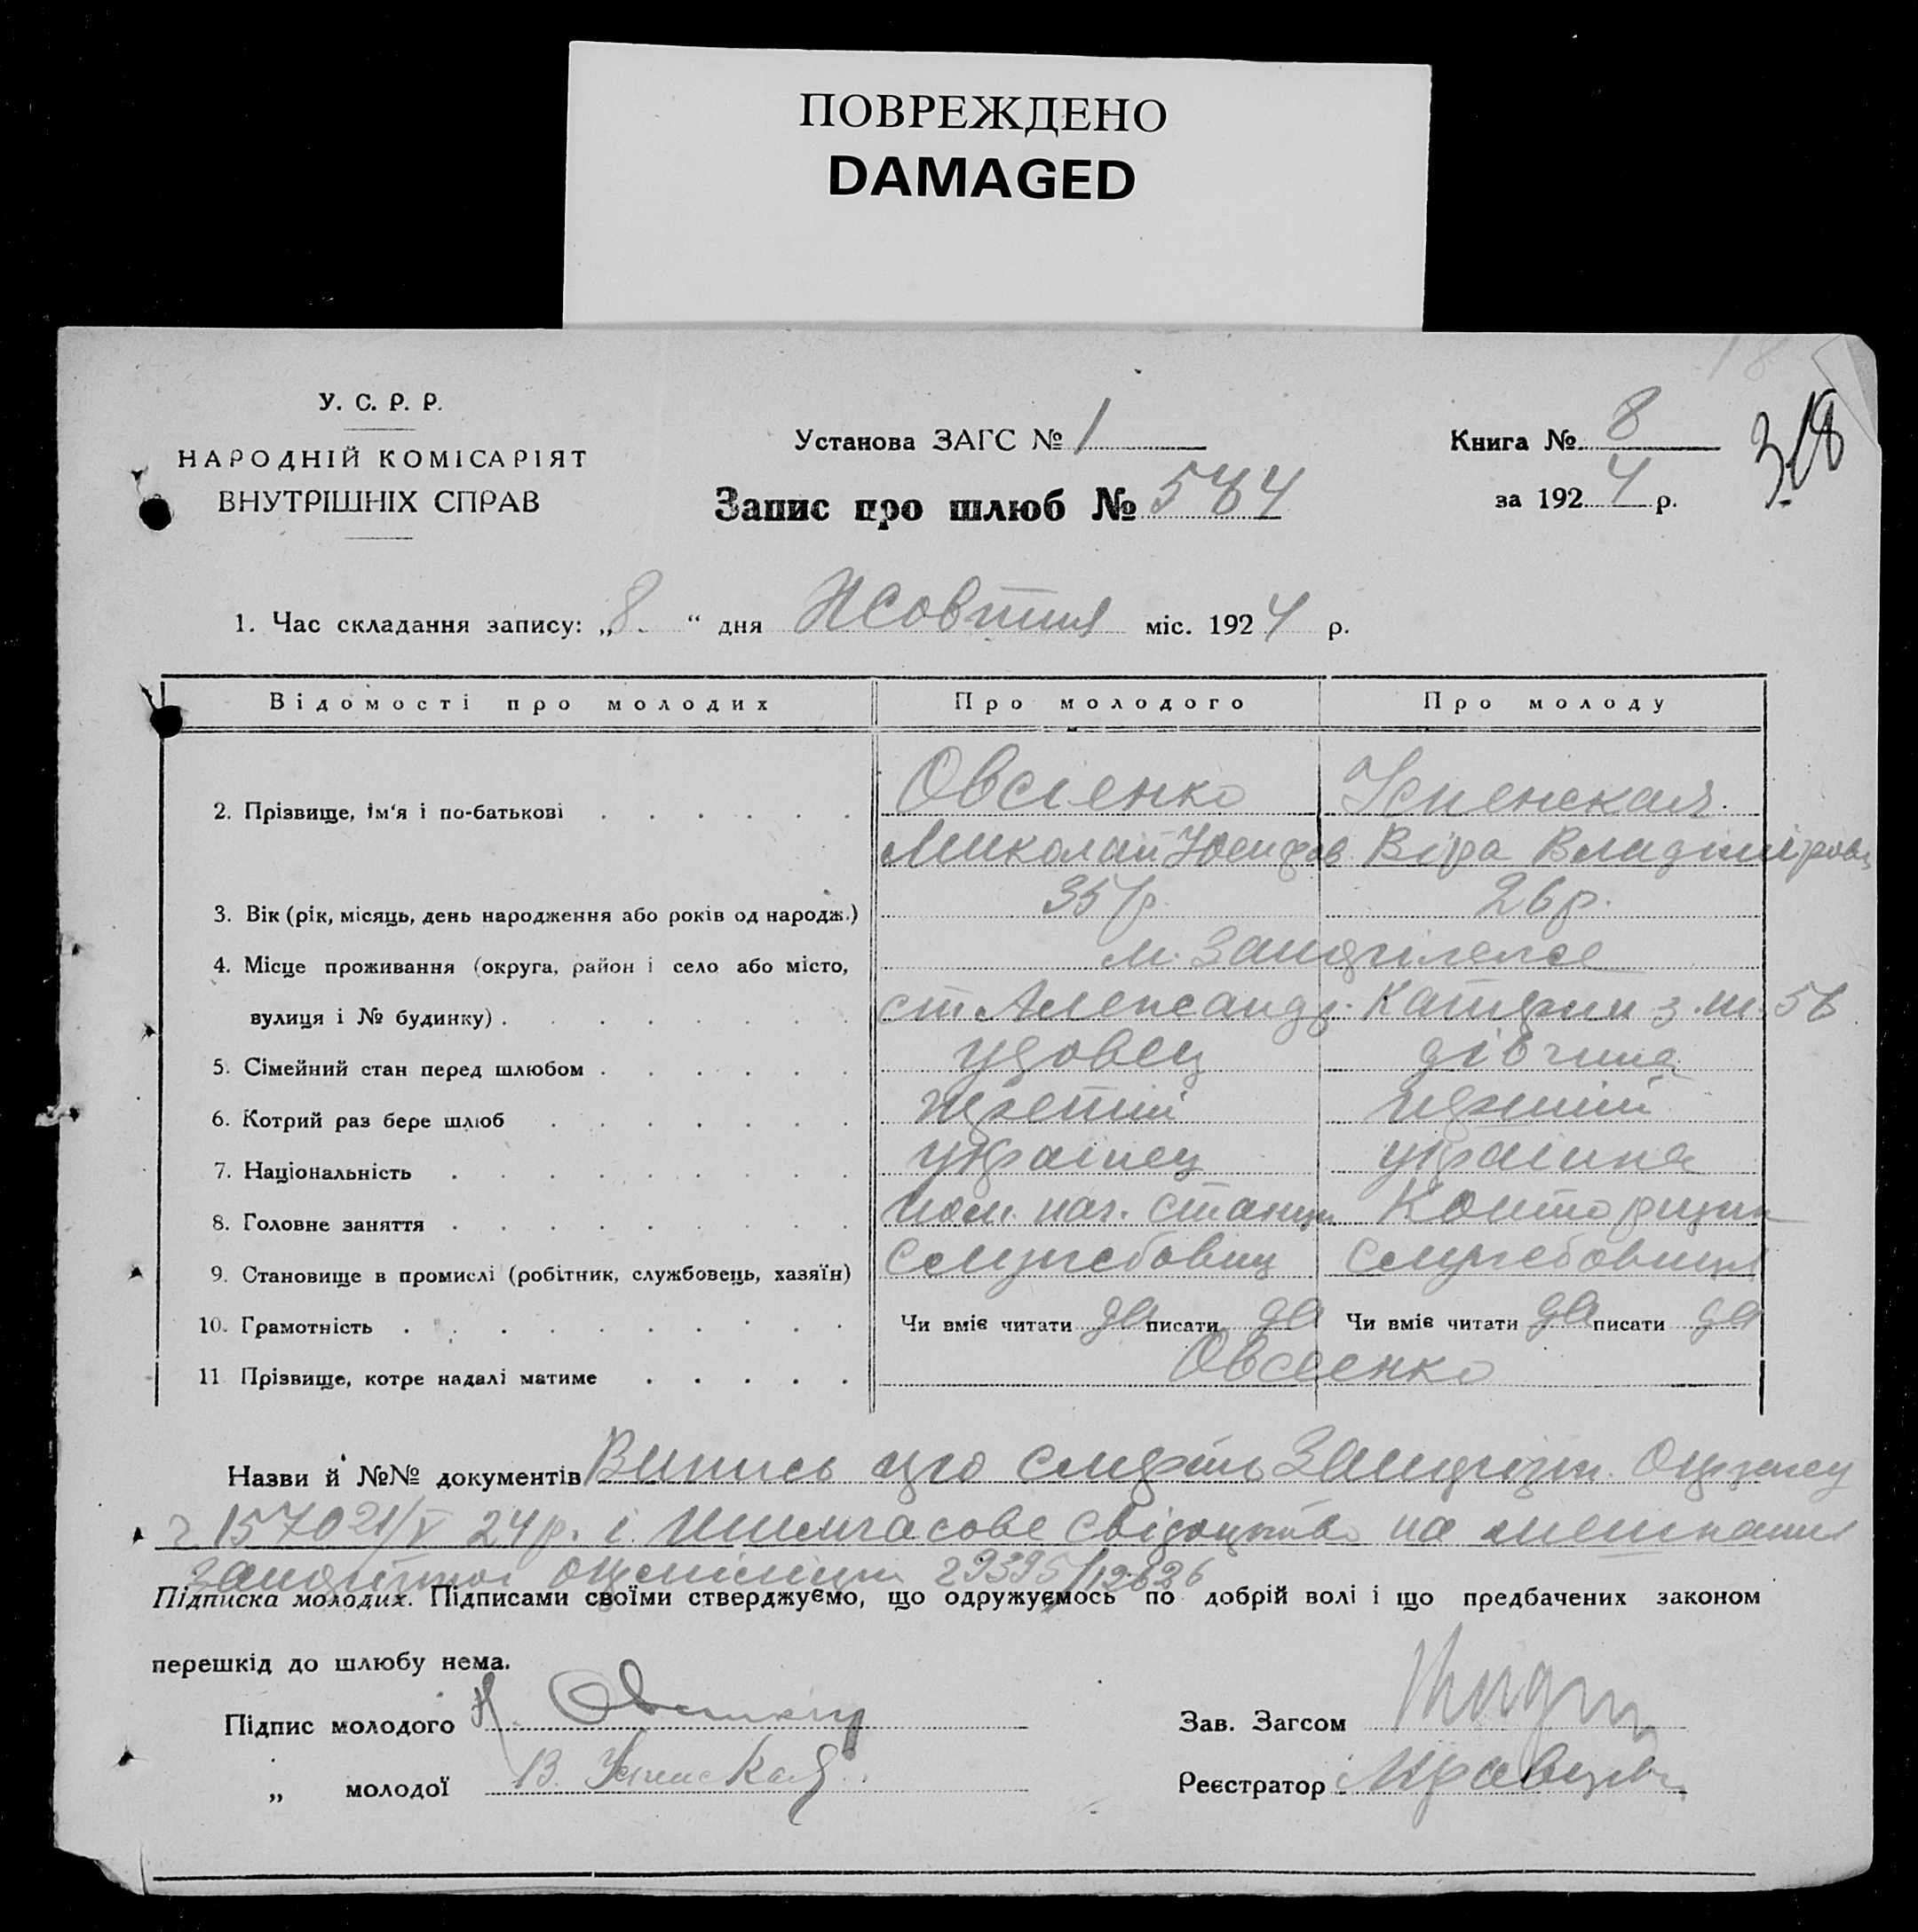 ПОВРЕЖДЕНО
DAMAGED
У. С. Р. Р.
НАРОДНІЙ КОМІСАРІЯТ
ВНУТРІШНІХ СПРАВ
Установа ЗАГС № 1
Запис про шлюб №
Книга № 8
за 1924 р.
318
1. Час складання запису: „8.“ дня Жовтня міс. 1924 р.
Відомості про молодих Про молодого Про молоду
2. Прізвище, ім'я і по-батькові Овсіенко Успенская
Миколай Юсипов Віра Владіміров
3. Вік (рік, місяць, день народження або років од народж.) 35 р. 26 р.
4. Місце проживання (округа, район і село або місто, м.
вулиця і № будинку) ст. Александр. Катерин з. ш. 56
5. Сімейний стан перед шлюбом удовец дівчина
6. Котрий раз бере шлюб третій перший
7. Національність українец українка
8. Головне заняття пом. нач. станции Конторщик
9. Становище в промислі (робітник, службовець, хазяїн) Службовиц Службовиця
10. Грамотність Чи вміє читати да писати да Чи вміє читати да писати да
11 Прізвище, котре надалі матиме Овсеенко
Назви й №№ документів Випись про смерть
ч. 1570 21/V 24 р. і тимчасове свідоцтво на мешкання
29395/12626
Підписка молодих. Підписами своїми стверджуємо, що одружуємось по добрій волі і що предбачених законом
перешкід до шлюбу нема.
Підпис молодого Н
Зав. Загсом
„ молодої В. Успенская
Реєстратор